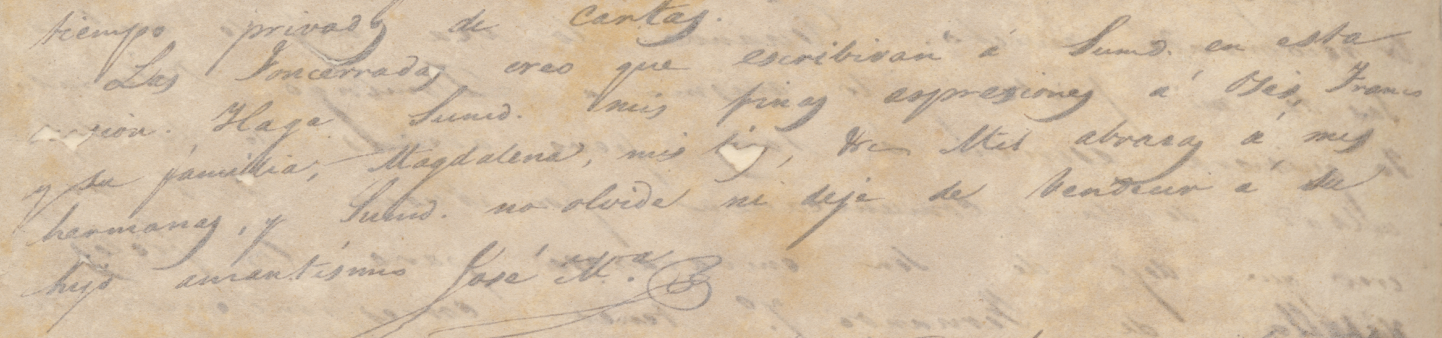 tiempo privado de cartas.
Las Foncerradas creo que escribiran á Sumd. en esta
Haga Sumd. mis finas aspresiones á Franco
y su familia, Magdalena, mis &c. Mil abrasos á mis
hermanas, y Sumd. no olvide ni deje de bendecir á su
hijo amantísimo José Mra.